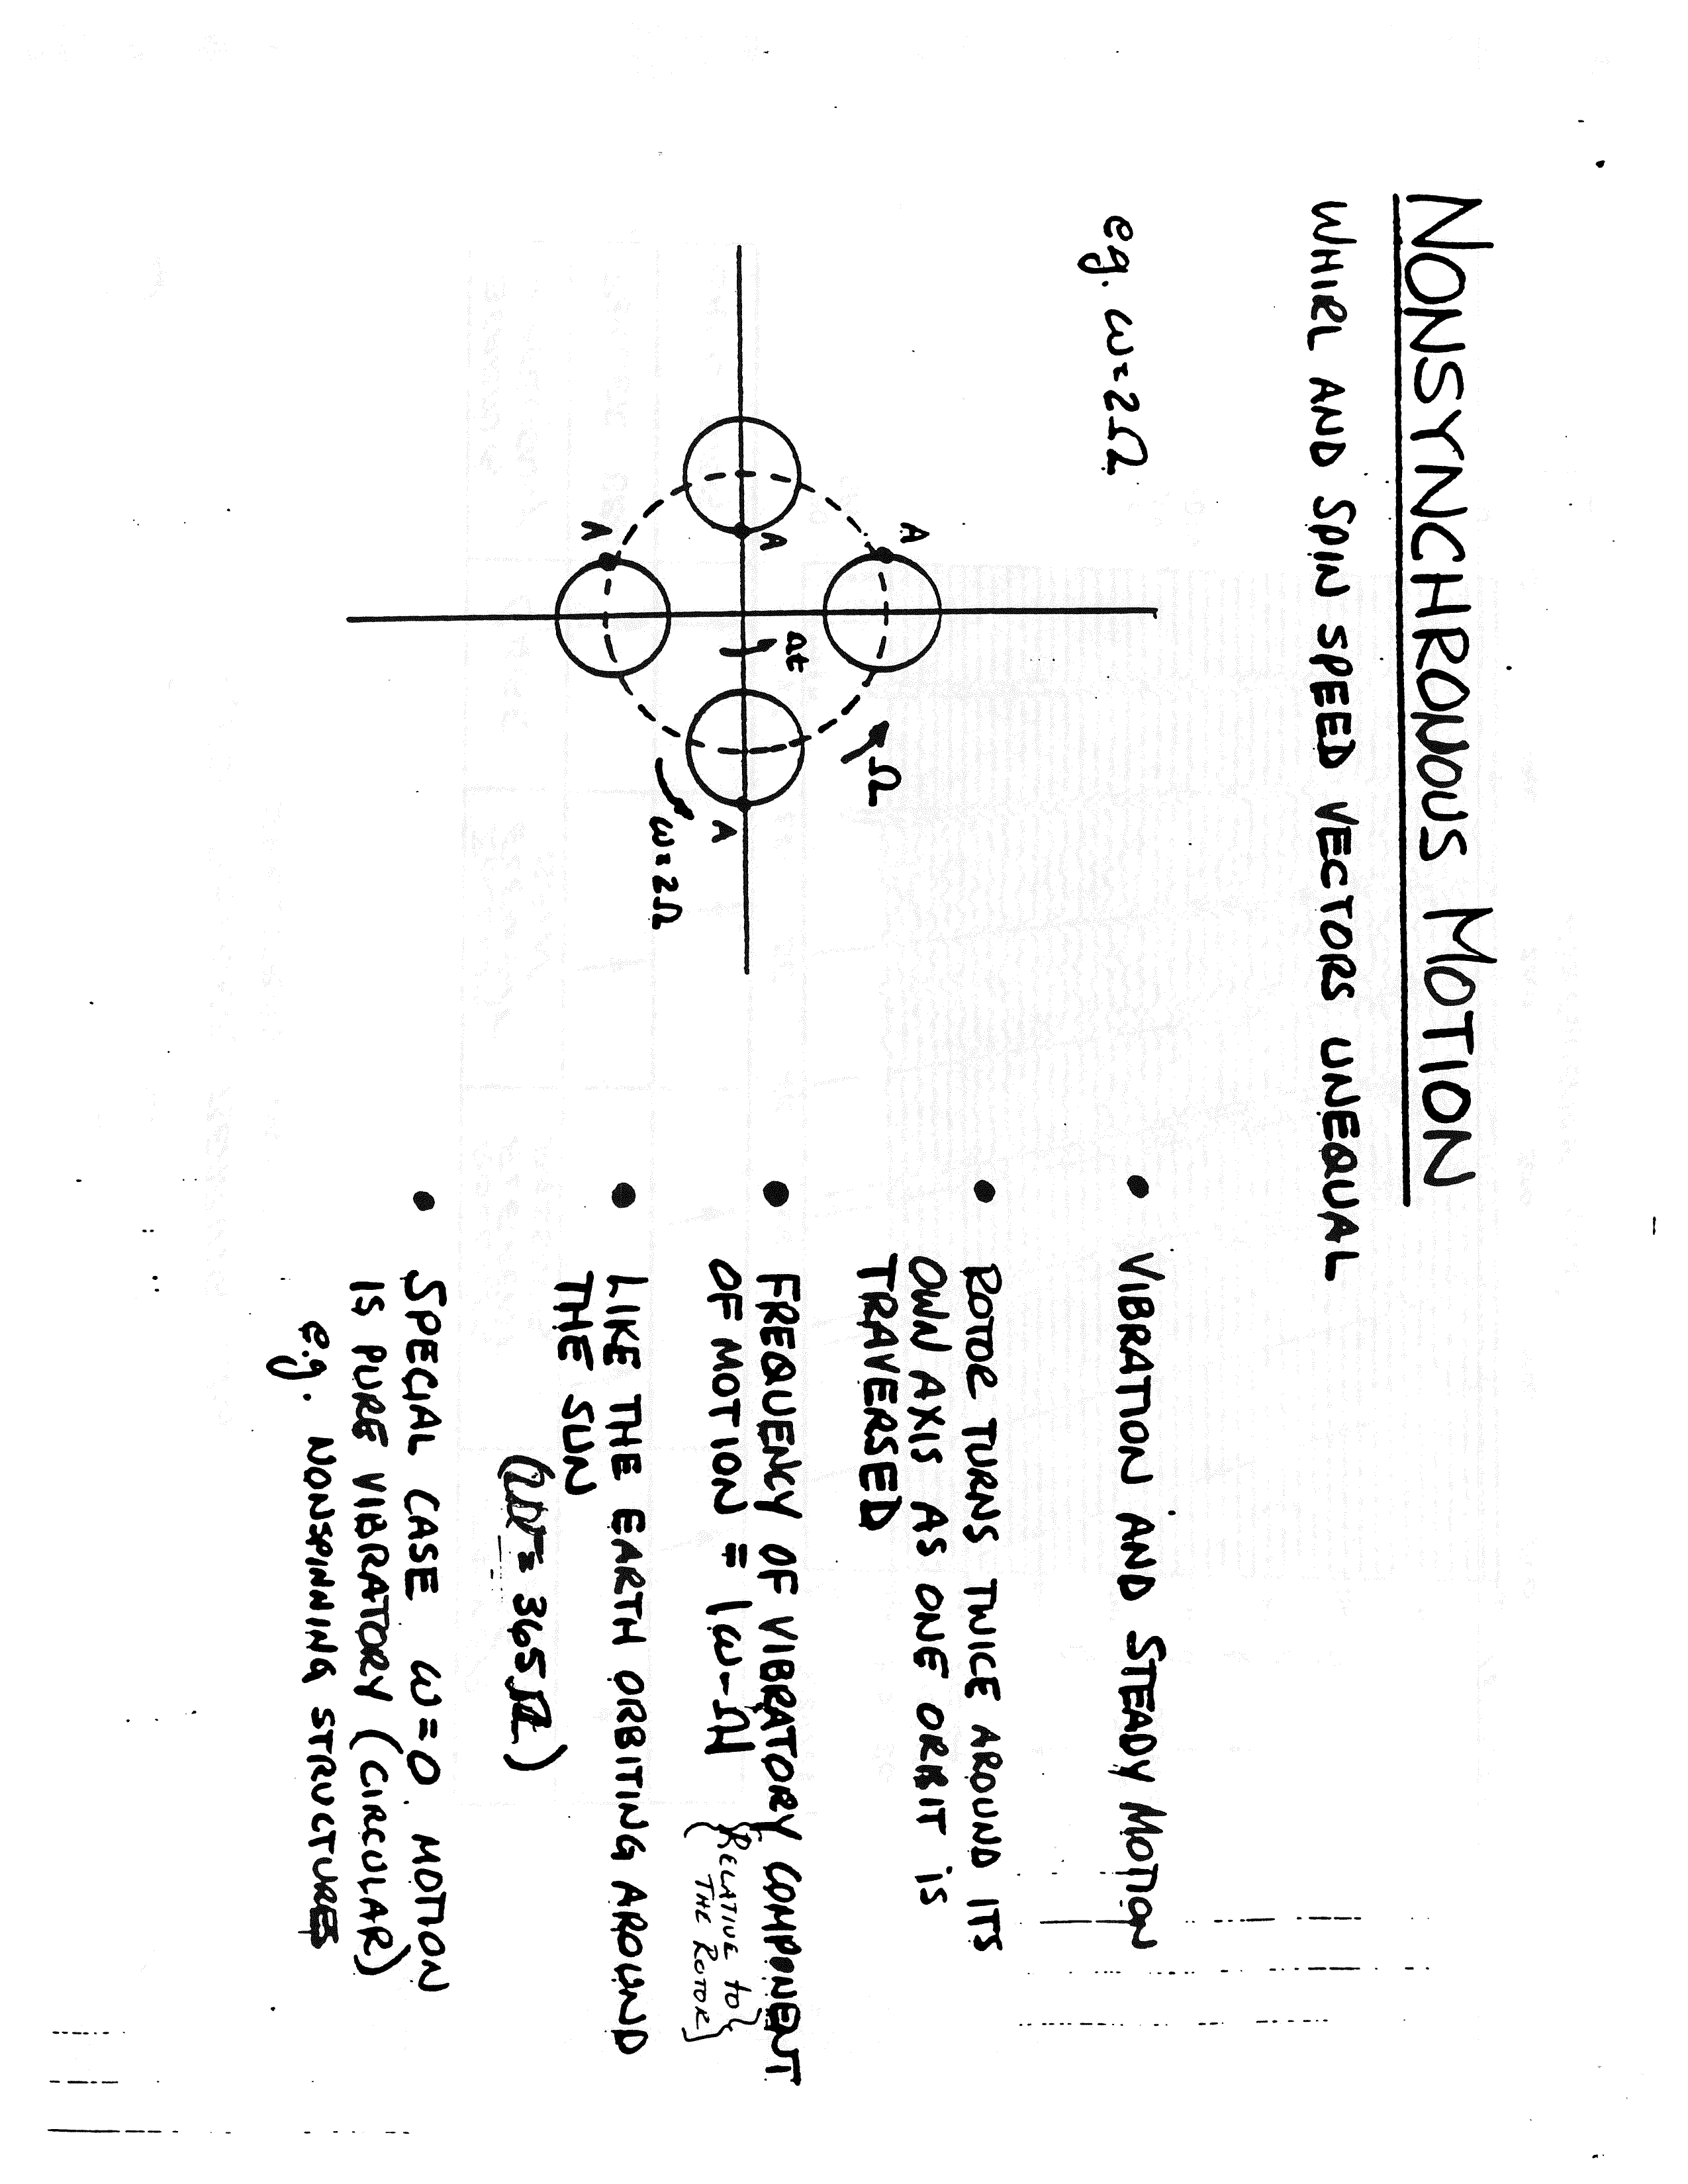 NONSYNCHRONOUS MOTION
WHIRL AND SPIN SPEED VECTORS UNEQUAL
eg. ω=2Ω
A
Ω
Δt
A
A
A
ω=2Ω
• VIBRATION AND STEADY MOTION
• ROTOR TURNS TWICE AROUND ITS
OWN AXIS AS ONE ORBIT IS
TRAVERSED
• FREQUENCY OF VIBRATORY COMPONENT
OF MOTION ≡ |ω-Ω| {RELATIVE to
THE ROTOR}
• LIKE THE EARTH ORBITING AROUND
THE SUN
(ω = 365Ω)
• SPECIAL CASE ω=0. MOTION
IS PURE VIBRATORY (CIRCULAR)
e.g. NONSPINNING STRUCTURES